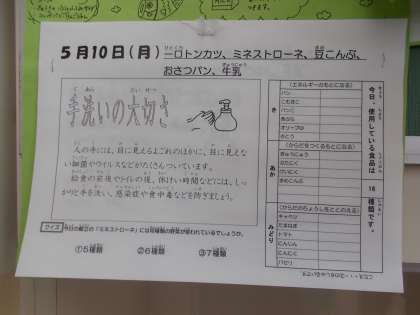 5月10日(月) 一口トンカツ、ミネストローネ、豆こんぶ、
おさつパン、牛乳
手洗いの大切さ
人の手には、目に見えるよごれのほかに、目に見えな
い細菌やウイルスなどがたくさんついています。
給食の前後やトイレの後、休けい時間などには、しっ
かりと手を洗い、感染症や食中毒などを防ぎましょう。
クイズ 今日の献立の「ミネストローネ」には何種類の野菜が使われているでしょうか。
①5種類 ②6種類 ③7種類
今日、使用している食品は
16
種類です。
き
(エネルギーのもとになる)
パン
こむぎこ
パンこ
オリーブゆ
さとう
あか
(からだをつくるもとになる)
ぎゅうにゅう
ぶたにく
だいず
みどり
(からだのちょうしをととのえる)
キャベツ
たまねぎ
トマト
にんじん
にんにく
パセリ